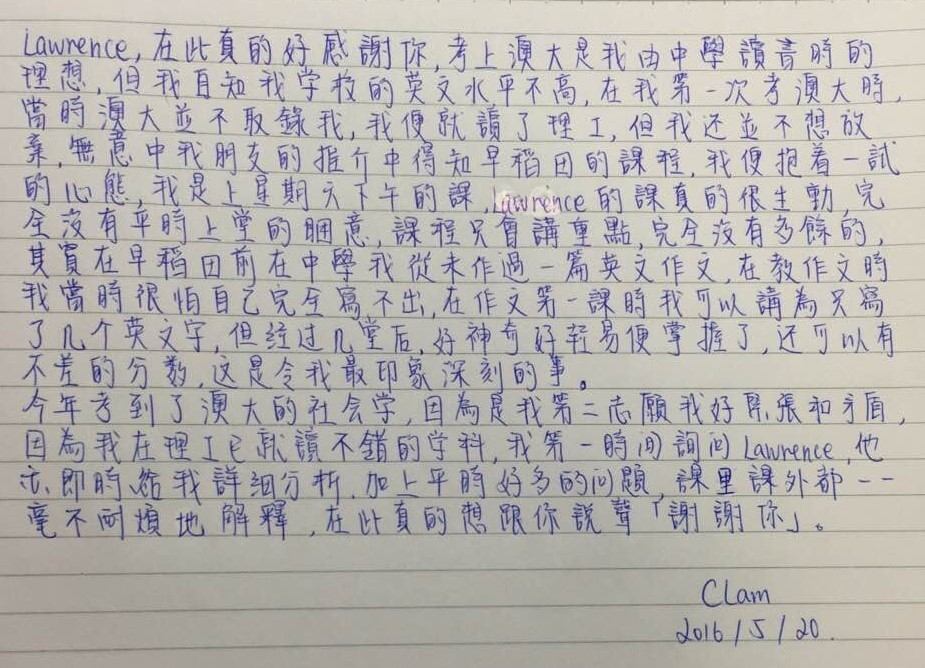 Lawrence, 在此真的好感謝你, 考上澳大是我由中學讀書時的
理想, 但我自知我学校的英文水平不高, 在我第一次考澳大時,
當時澳大並不取錄我, 我便就讀了理工, 但我还並不想放
棄, 無意中我朋友的推介中得知早稻田的課程, 我便抱着一試
的心態, 我是上星期六下午的課, Lawrence 的課真的很生動, 完
全沒有平時上堂的睏意, 課程只會講重點, 完全沒有多餘的,
其實在早稻田前在中學我從未作過一篇英文作文, 在教作文時
我當時很怕自己完全寫不出, 在作文第一課時我可以講為只寫
了几个英文字, 但经过几堂后, 好神奇好轻易便掌握了, 还可以有
不差的分数, 这是令我最印象深刻的事。
今年考到了澳大的社会学, 因為是我第二志願我好緊張和矛盾,
因為我在理工已就讀不錯的学科, 我第一時间詢问 Lawrence, 他
亦即時給我詳細分析, 加上平時好多的问題, 課里課外都一一
毫不耐煩地解釋, 在此真的想跟你說聲「謝謝你」。
CLam
2016/5/20.